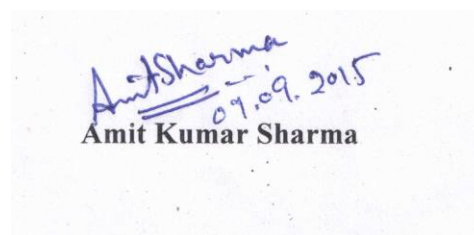 AmitSharma
09.09.2015
Amit Kumar Sharma